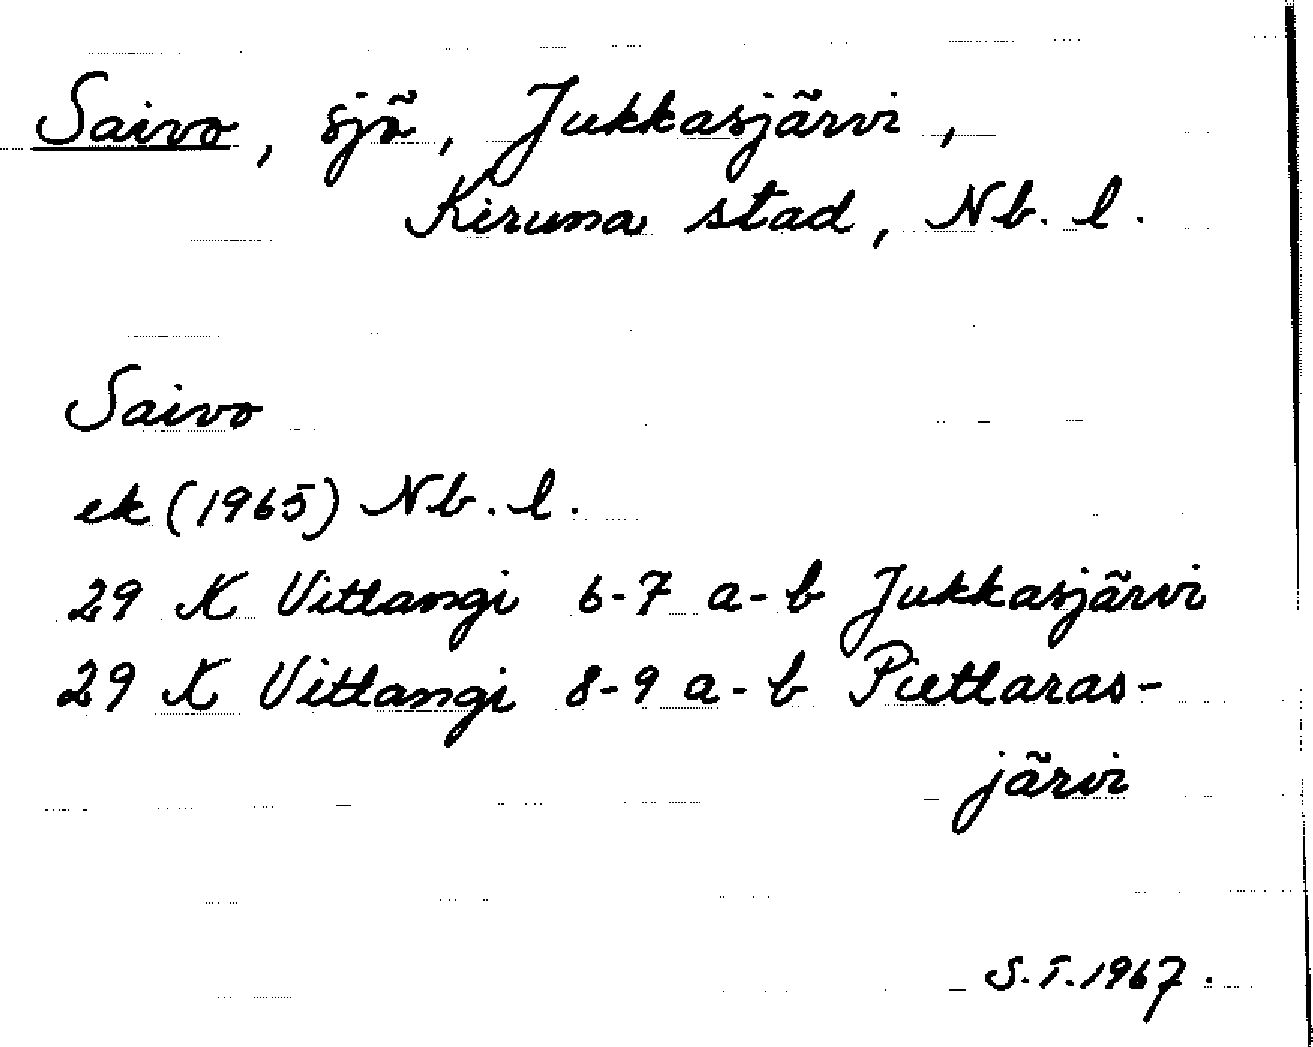 Saivo, sjö, Jukkasjärvi,
Kiruna stad, Nb. l.
Saivo
ek (1965) Nb. l.
29 K Vittangi 6-7 a-b Jukkasjärvi
29 K Vittangi 8-9 a-b Piettaras-
järvi
S.T. 1967.